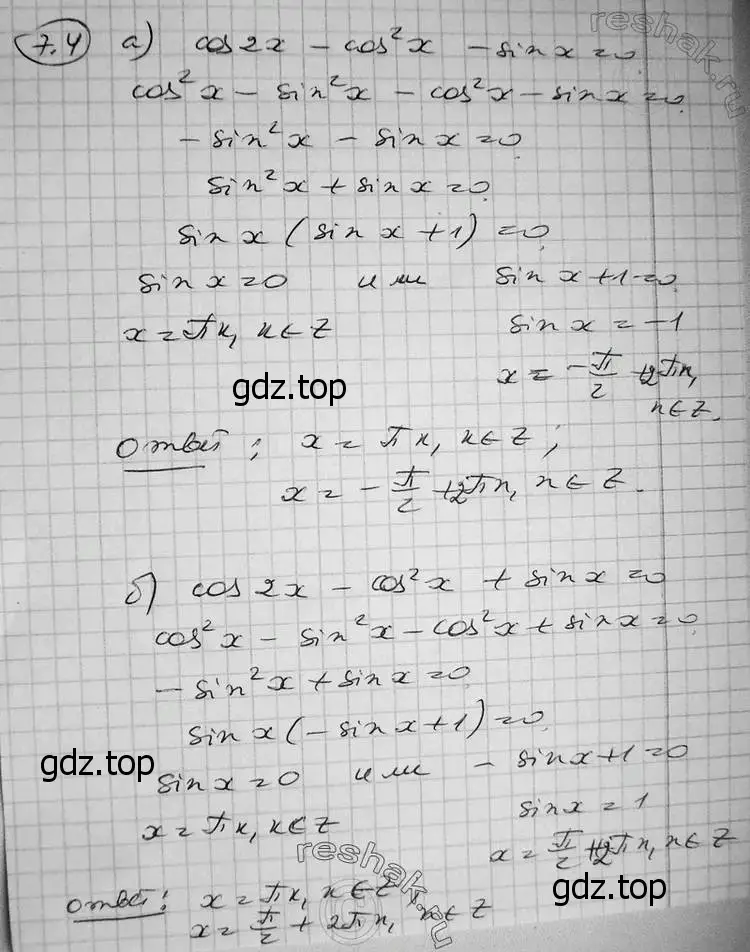 7.4 а) cos 2x - cos²x - sin x = 0
cos²x - sin²x - cos²x - sin x = 0
- sin²x - sin x = 0
sin²x + sin x = 0
sin x (sin x + 1) = 0
sin x = 0 или sin x + 1 = 0
x = πk, k ∈ Z sin x = -1
x = -π/2 + 2πn,
n ∈ Z.
gdz.top
Ответ: x = πk, k ∈ Z;
x = -π/2 + 2πn, n ∈ Z.
б) cos 2x - cos²x + sin x = 0
cos²x - sin²x - cos²x + sin x = 0
- sin²x + sin x = 0
sin x (- sin x + 1) = 0
gdz.top
sin x = 0 или - sin x + 1 = 0
sin x = 1
x = πk, k ∈ Z x = π/2 + 2πn, n ∈ Z
reshak.ru
gdz.top
Ответ: x = πk, k ∈ Z
x = π/2 + 2πn, n ∈ Z
reshak.ru